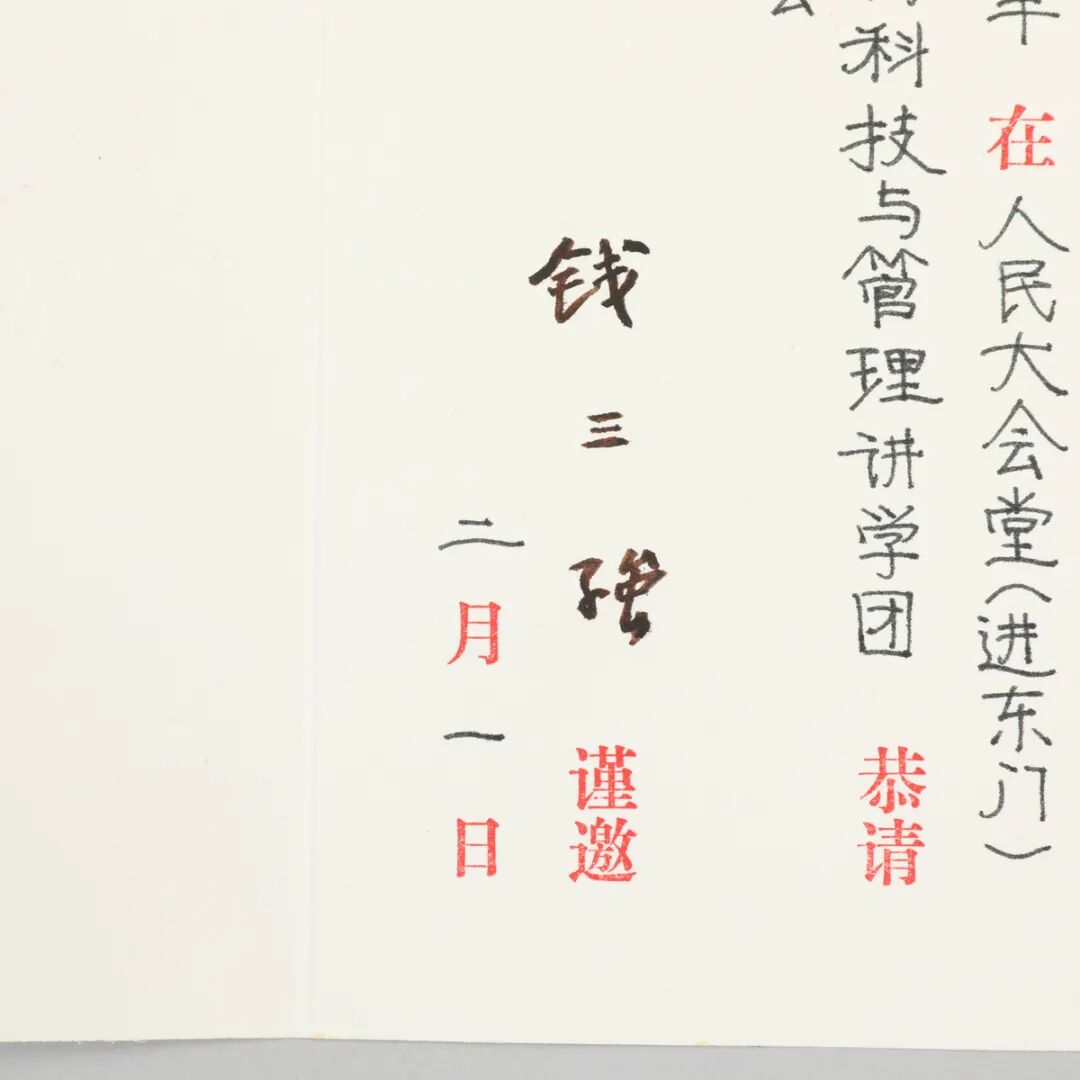 在人民大会堂（进东门）
科技与管理讲学团 恭请
钱三强 谨邀
二月一日